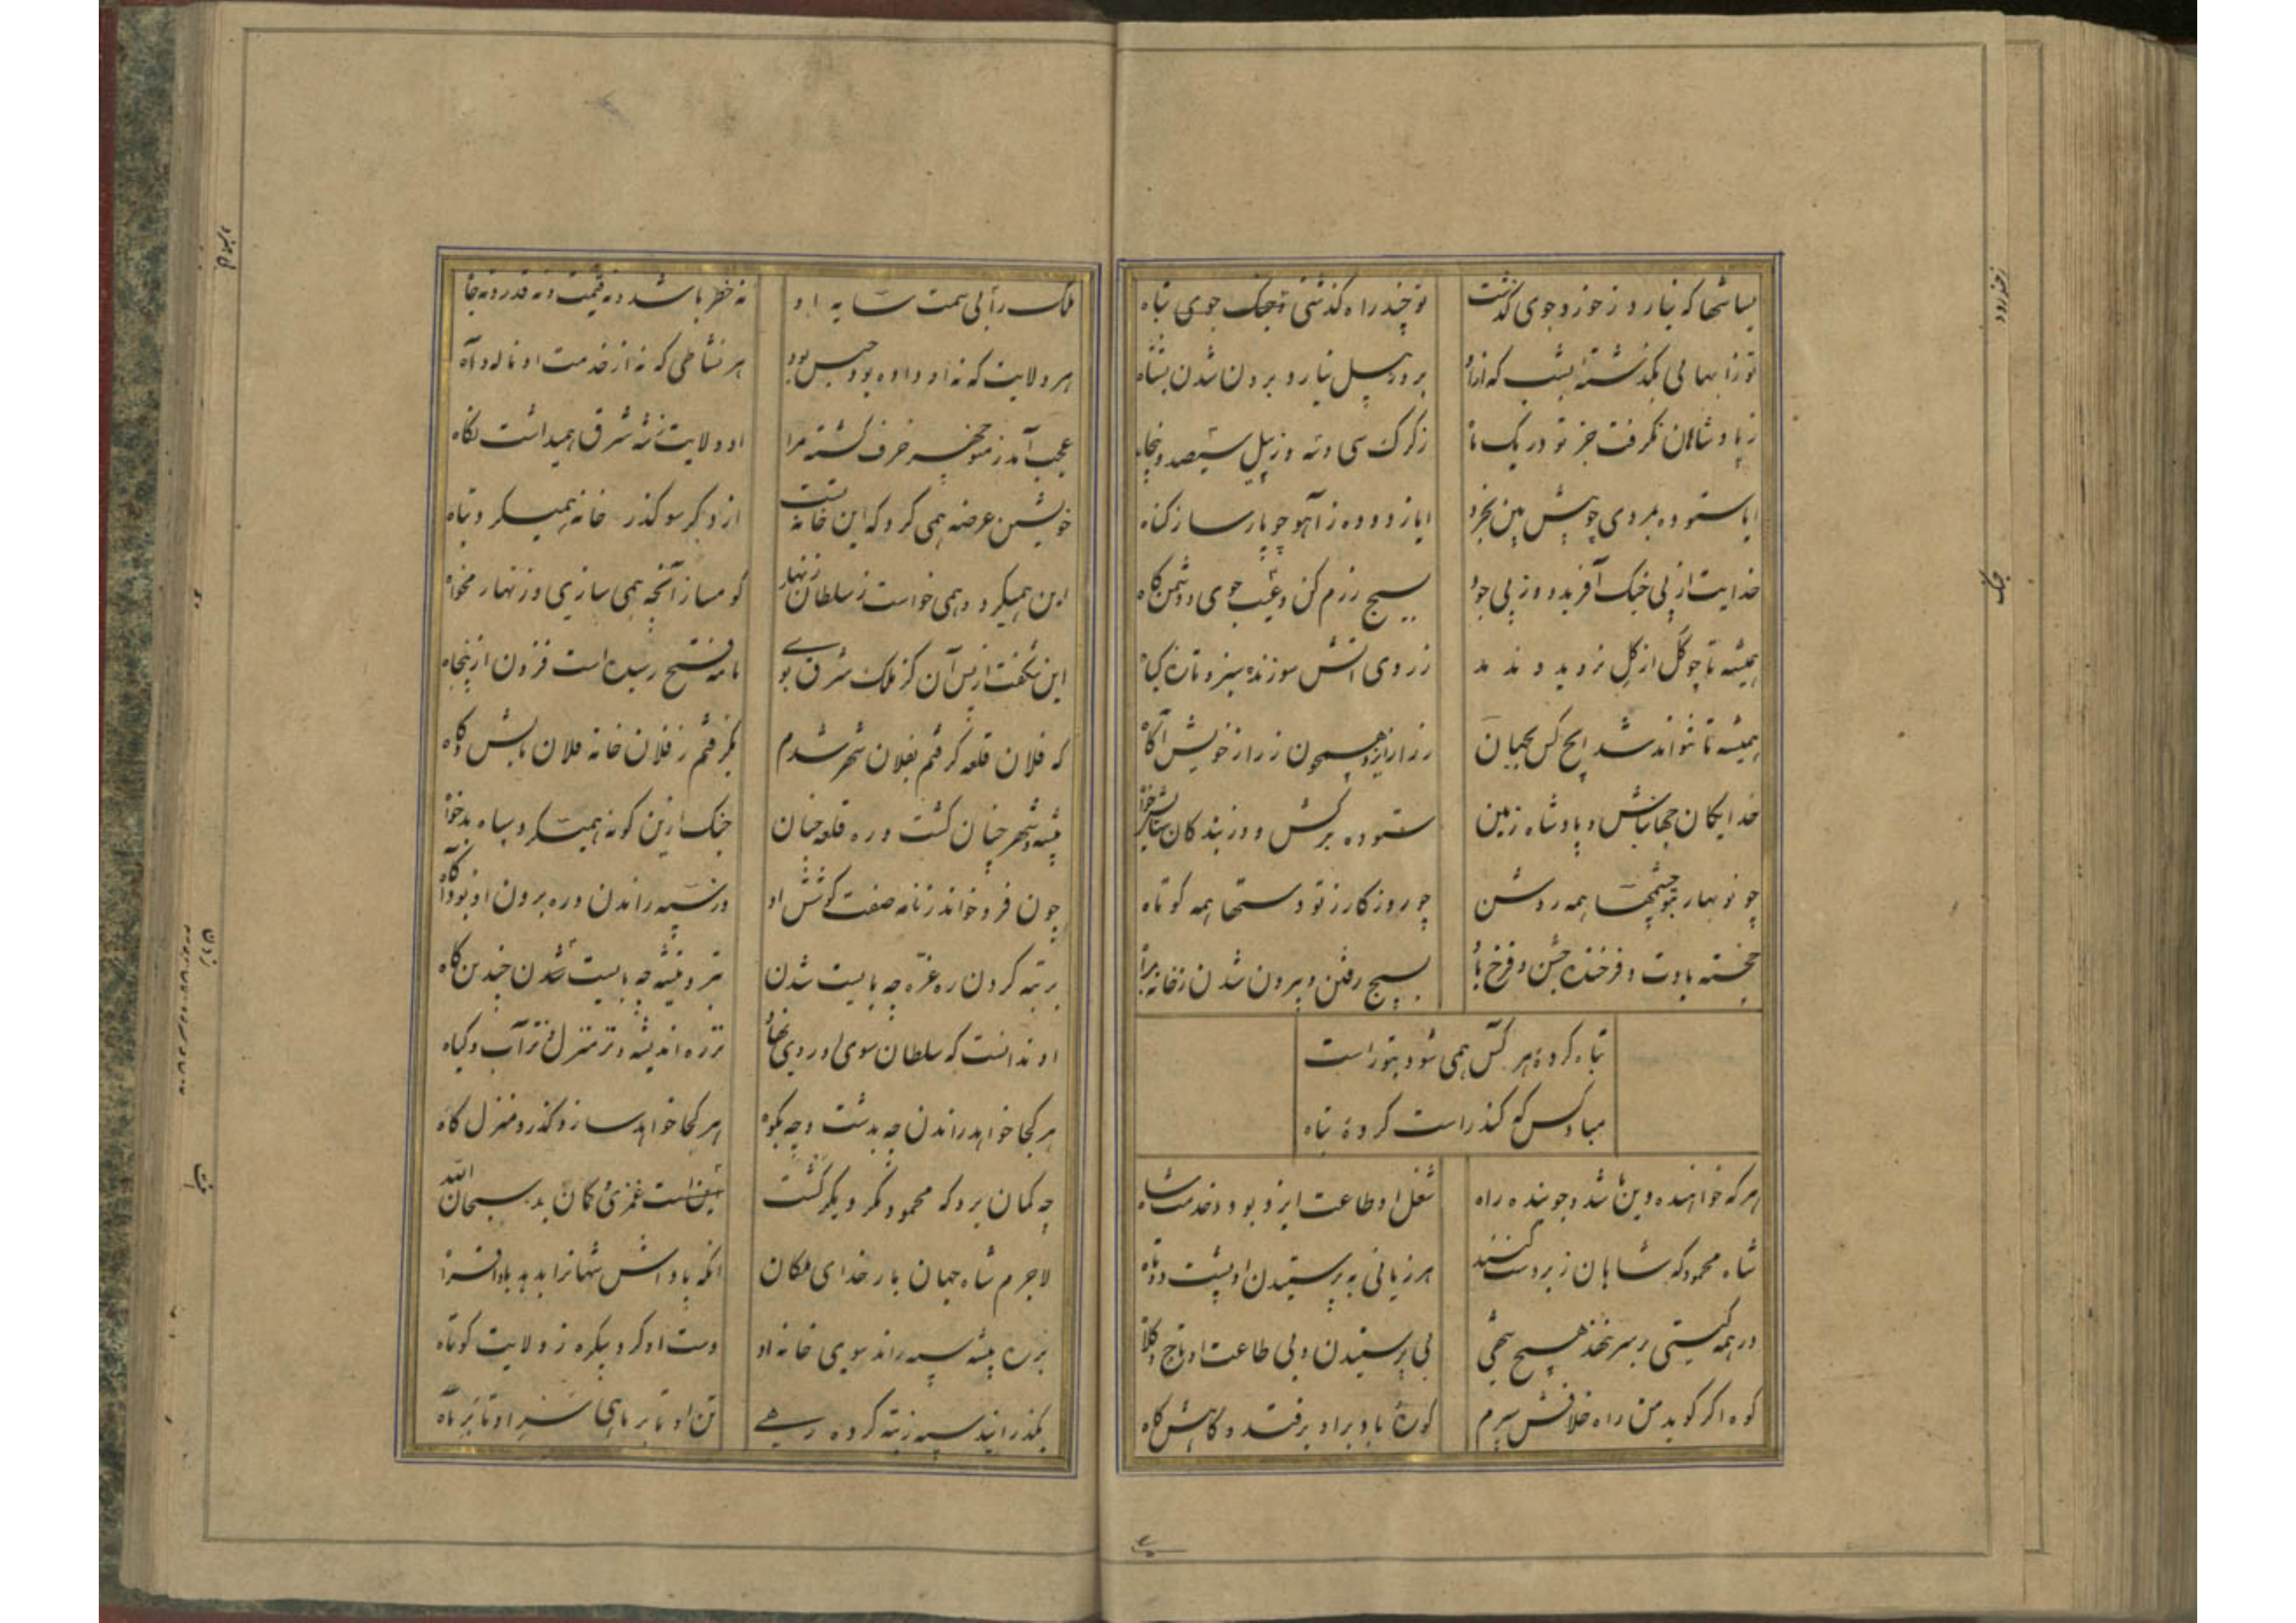 بسا شها که نیارد ز خوز و جوی گذشت
تو چند راه گذشتی بجنک جوی تباه
تو ز آبهایی بگذشته بشب که ازو
بروز پیل نیارد برون شدن بشناه
ز پادشاهان نگرفت جز تو در یک
ز کرک سی و سه و ز پیل سیصد و پنجاه
ایا ستوده بمردی چو پیش بین بخرد
ایا زدوده ز آهو چو پارسا ز کناه
خدایت از پی جنک آفرید و ز پی جود
بسیج رزم کن و جنک جوی و دشمن کاه
همیشه تا چو کل از کل نروید و ندمد
ز روی آتش سوزنده سبز و تازه کیاه
همیشه تا نتواند شد ایچ کس بجهان
ز راز ایزد همچون ز راز خویش آگاه
خدایکان جهان باش و پادشاه زمین
ستوده برکش و در بندکان
چو نوبهار بتو چشمها همه روشن
چو روزکار ز تو دستها همه کوتاه
خجسته بادت و فرخنده جشن و فرخ باد
بسیج رفتن و بیرون شدن ز خانه براه
تباه کردهٔ هر کس همی شود بتو راست
مباد کس که کند راست کردهٔ تباه
هر که خواهنده دین باشد و جوینده راه
شغل او طاعت ایزد بود و خدمت شاه
شاه محمود که شاهان زبردست کنند
هر زمانی به پرستیدن او پشت دوتاه
در همه کیتی بر سر نهند هیچ شهی
بی پرستیدن و بی طاعت او تاج و کلاه
کوه اکر کوید من راه خلافش سپرم
کوه با باد برابر فتد و کاهش کاه
ملک را بی همت سایه او
نه خطر باشد و نه قیمت و نه قدر و نه جاه
هر ولایت که نه او داده بود حبس بود
هر نشاطی که نه از خدمت او ناله و آه
عجب آمد ز منوچهر خرف کشته مرا
او ولایت نه شرق همیداشت نکاه
خویشتن عرضه همی کرد که این خانه تست
از دکر سو کذر خانه همیکرد تباه
این همیکرد و همی خواست ز سلطان زنهار
کو مساز آنچه همی سازی و زنهار مخواه
این شکفت از پس آن کز ملک شرق بوی
نامه فتح رسیده است فزون از پنجاه
که فلان قلعه کرفتم بفلان شهر شدم
بکرفتم ز فلان خانه فلان بالش و کاه
بیشه و شهر چنان کشت و ره قلعه چنان
جنک ازین کونه همیکرد سپاه بدخواه
چون فرو خواند ز نامه صفت کوشش او
وز سپه راندن و ره بردن او بود آکاه
برتبه کردن ره غره چه بایست شدن
تبر و تیشه چه بایست شدن چندین کاه
او ندانست که سلطان سوی او روی نهاد
نز ره اندیشه و نز منزل نز آب و کیاه
هر کجا خواهد راندن چه بدشت و چه بکوه
هر کجا خواهد سازد کذر و منزل کاه
چه کمان برد که محمود مکر دیکر کشت
اینت غمری و کمان بد سبحان الله
لاجرم شاه جهان بار خدای ملکان
آنکه پاداش شهانرا بدهد بادافراه
بر ره بیشه سپه راند سوی خانه او
دست او کرد بیکره ز ولایت کوتاه
بکذرانید سپه ز تبه کرده رهی
تن او تا بر ماهی سر او تا بر ماه